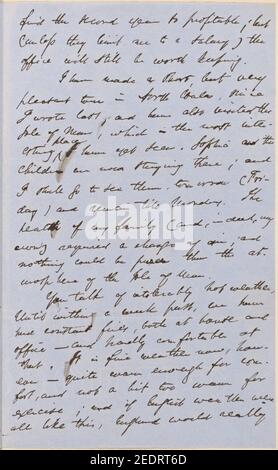 find the second year so profitable; but
(unless they limit me to a salary) the
office will still be worth keeping.
I have made a short, but very
pleasant tour in North Wales, since
I wrote last; and have also visited the
Isle of Man, which is the most inte-
resting place I have yet seen. Sophia and the
children are now staying there; and
I shall go to see them tomorrow (Fri-
day) and spend till Monday. The
health of my family (and, indeed, my
own) required a change of air; and
nothing could be purer than the at-
mosphere of the Isle of Man.
You talk of intolerably hot weather.
Until within a week past, we have
had constant fires, both at house and
office — and hardly comfortable at
that. It is fine weather now, how-
ever — quite warm enough for com-
fort, and not a bit too warm for
exercise; and if English weather were
all like this, England would really
alamy
Image ID: 2EDRT6D
www.alamy.com